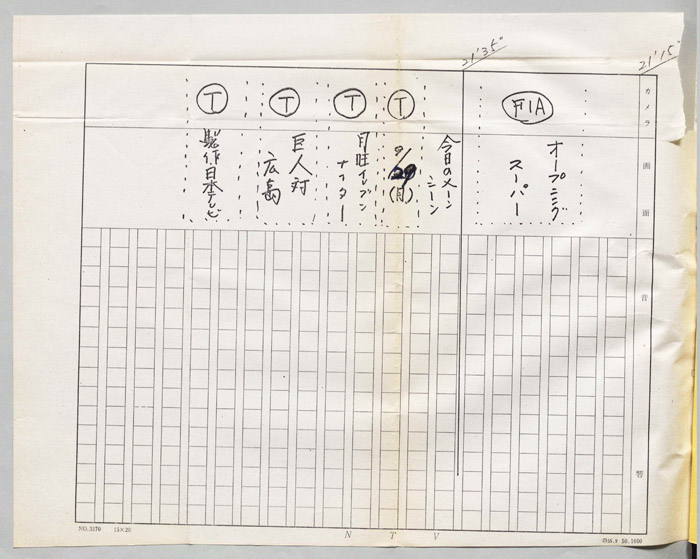 21'15"
カメラ
画面
音
響
FIA
オープニング
スーパー
21'35"
今日のメーン
シーン
T
9/29(月)
T
月曜イレブン
ナイター
T
巨人対
広島
T
製作日本テレビ
NO.3370 15×20
NTV